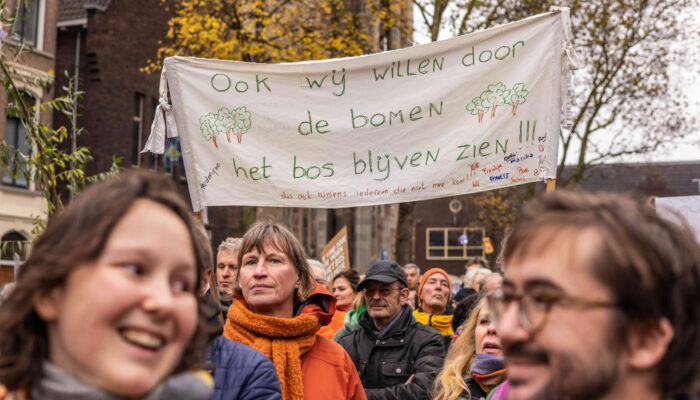 Ook wij willen door
de bomen
het bos blijven zien!!!
dus ook namens iedereen die niet mee kon!